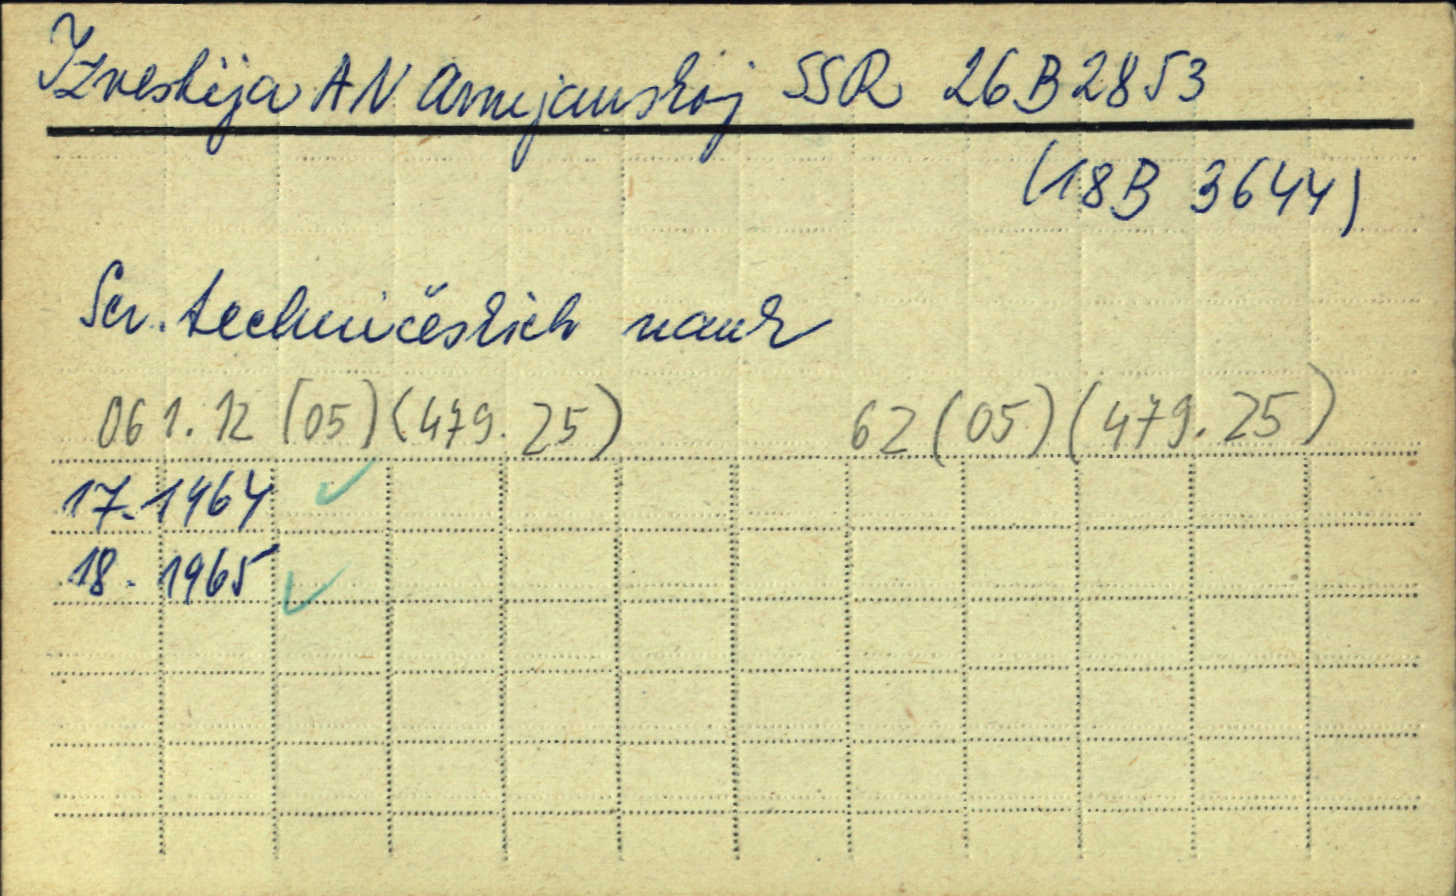 Izvestija AN Armjanskoj SSR 26B2853
(18B 3644)
Ser. techničeskich nauk
061.12 (05) (479.25) 62 (05) (479.25)
17. 1964 ✓
18. 1965 ✓